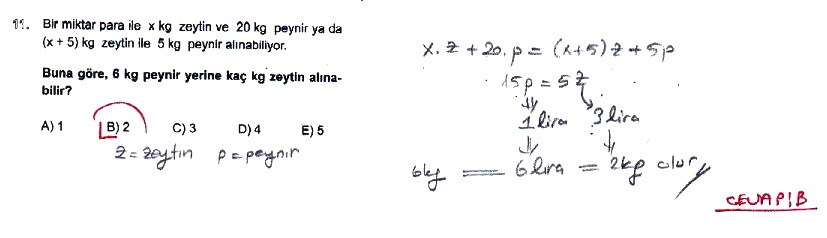 11. Bir miktar para ile x kg zeytin ve 20 kg peynir ya da
(x + 5) kg zeytin ile 5 kg peynir alınabiliyor.
Buna göre, 6 kg peynir yerine kaç kg zeytin alına-
bilir?
A) 1 B) 2 C) 3 D) 4 E) 5
z = zeytin p = peynir
x. z + 20. p = (x+5) z + 5p
15p = 5z
1 lira 3 lira
6kg = 6 lira = 2kg olur
CEVAP B